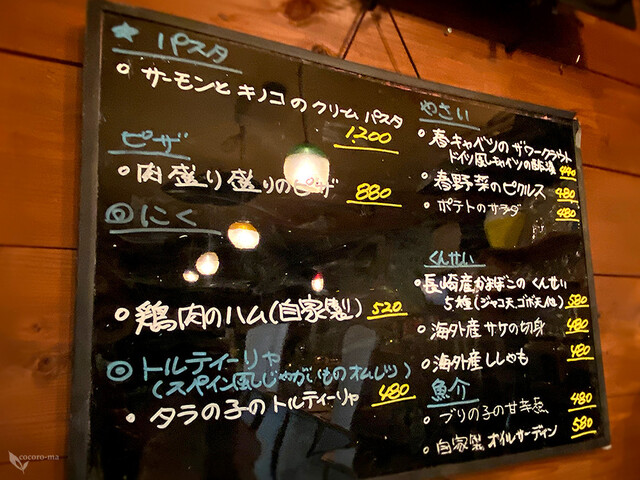 ★ パスタ
・サーモンとキノコのクリームパスタ
1200
ピザ
・肉盛り盛りのピザ 880
◎ にく
・鶏肉のハム(自家製) 520
◎ トルティーリャ
(スペイン風じゃがいものオムレツ)
・タラの子のトルティーリャ 480
やさい
・春キャベツのザワークラウト
ドイツ風キャベツの
・春野菜のピクルス 480
・ポテトのサラダ 480
くんせい
・長崎産かまぼこのくんせい
5種(ジャコ天、ゴボ天他) 580
・海外産サケの切身 480
・海外産ししゃも 480
魚介
・ブリの子の甘辛煮 480
・自家製オイルサーディン 580
cocoro-ma